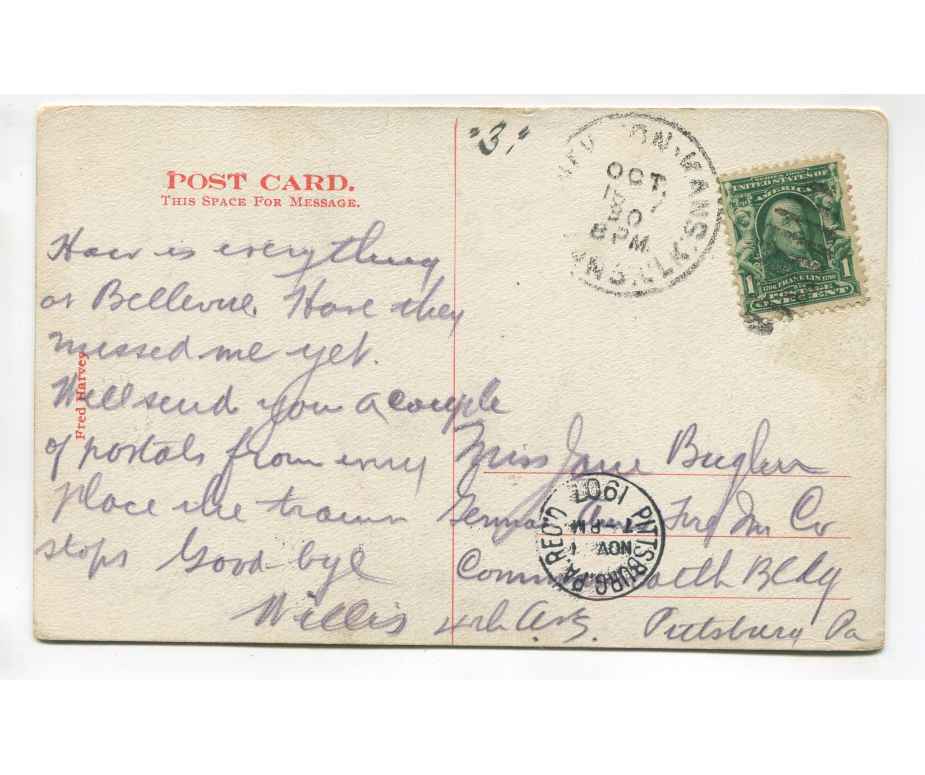 POST CARD.
THIS SPACE FOR MESSAGE.
"3"
OCT
30
8 PM
SERIES 1902
UNITED STATES OF
AMERICA
1 FRANKLIN 1
POSTAGE
ONE CENT
How is everything
at Bellevue. Have they
missed me yet.
Will send you a couple
of postals from every
place the train
stops Good-bye
Willis
Fred Harvey
Miss Jane
Ger Am Fire In Co
Commonwealth Bldg
4th Ave. Pittsburg Pa
PITTSBURG, PA. REC'D.
1907
PM
NOV 1